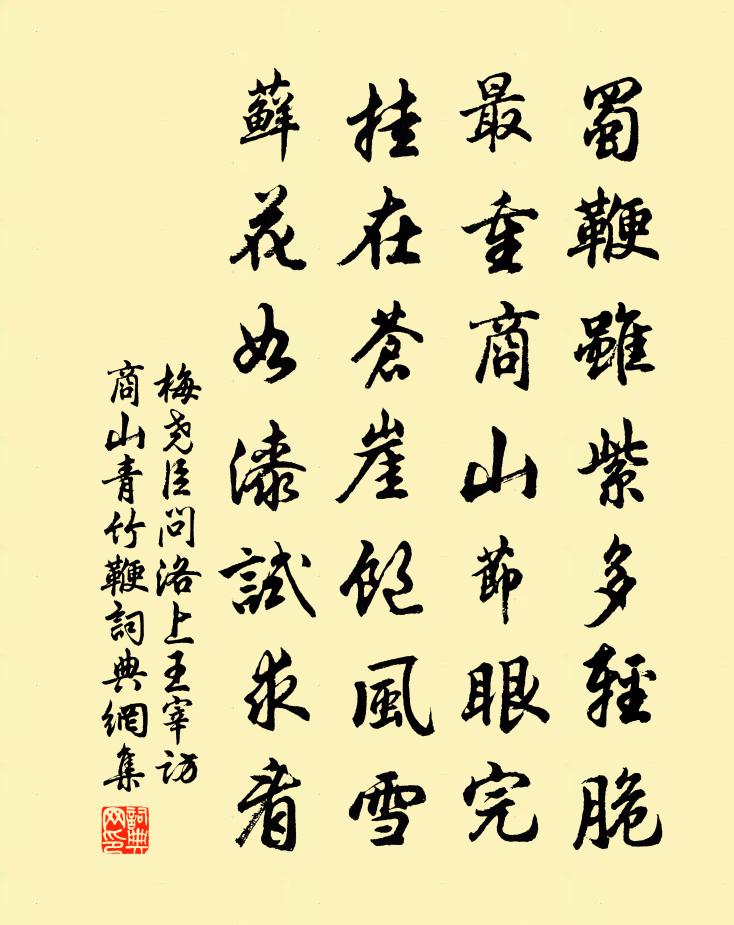 蜀鞭雖紫多輕脆
最重商山節眼完
挂在蒼崖飽風雪
蘚花如漆試求看
梅尧臣問洛上王宰访
商山青竹鞭詞典網集
詞典网印